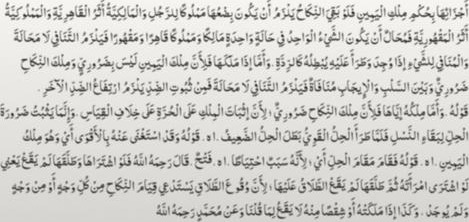 أَجْزَائِهَا بِحُكْمِ مِلْكِ الْيَمِينِ فَلَوْ بَقِيَ النِّكَاحُ يَلْزَمُ أَنْ يَكُونَ بِضْعُهَا مَمْلُوكًا لِلرَّجُلِ وَالْمَالِكِيَّةُ أَثَرُ الْقَاهِرِيَّةِ وَالْمَمْلُوكِيَّةُ
أَثَرُ الْمَقْهُورِيَّةِ فَمُحَالٌ أَنْ يَكُونَ الشَّيْءُ الْوَاحِدُ فِي حَالَةٍ وَاحِدَةٍ مَالِكًا وَمَمْلُوكًا قَاهِرًا وَمَقْهُورًا فَيَلْزَمُ التَّنَافِي لَا مَحَالَةَ
وَالْمُنَافِي لِلشَّيْءِ إِذَا وُجِدَ وَطَرَأَ عَلَيْهِ يُبْطِلُهُ كَالرِّدَّةِ. وَأَمَّا إِذَا مَلَكَهَا فَلِأَنَّ مِلْكَ الْيَمِينِ لَيْسَ بِضَرُورِيٍّ وَمِلْكَ النِّكَاحِ
ضَرُورِيٌّ وَبَيْنَ السَّلْبِ وَالْإِيجَابِ مُنَافَاةٌ فَيَلْزَمُ التَّنَافِي لَا مَحَالَةَ فَمِنْ ثُبُوتِ الضِّدِّ يَلْزَمُ ارْتِفَاعُ الضِّدِّ الْآخَرِ.
قَوْلُهُ. وَأَمَّا مِلْكُهُ إِيَّاهَا فَلِأَنَّ مِلْكَ النِّكَاحِ ضَرُورِيٌّ؛ لِأَنَّ إِثْبَاتَ الْمِلْكِ عَلَى الْحُرَّةِ عَلَى خِلَافِ الْقِيَاسِ. وَإِنَّمَا يَثْبُتُ ضَرُورَةَ
الْحِلِّ لِبَقَاءِ النَّسْلِ فَلَمَّا طَرَأَ الْحِلُّ الْقَوِيُّ بَطَلَ الْحِلُّ الضَّعِيفُ. اه. قَوْلُهُ وَقَدِ اسْتَغْنَى عَنْهُ بِالْأَقْوَى أَيْ وَهُوَ مِلْكُ
الْيَمِينِ. اه. قَوْلُهُ فَقَامَ مَقَامَ الْحِلِّ أَيْ؛ لِأَنَّهُ سَبَبٌ احْتِيَاطًا. اه. فَتْحٌ. قَالَ رَحِمَهُ اللَّهُ فَلَوِ اشْتَرَاهَا وَطَلَّقَهَا لَمْ يَقَعْ يَعْنِي
لَوِ اشْتَرَى امْرَأَتَهُ ثُمَّ طَلَّقَهَا لَمْ يَقَعِ الطَّلَاقُ عَلَيْهَا؛ لِأَنَّ وُقُوعَ الطَّلَاقِ يَسْتَدْعِي قِيَامَ النِّكَاحِ مِنْ كُلِّ وَجْهٍ أَوْ مِنْ وَجْهٍ
وَلَمْ يُوجَدْ. وَكَذَا إِذَا مَلَكَتْهُ أَوْ شِقْصًا مِنْهُ لَا يَقَعُ لِمَا قُلْنَا وَعَنْ مُحَمَّدٍ رَحِمَهُ اللَّهُ